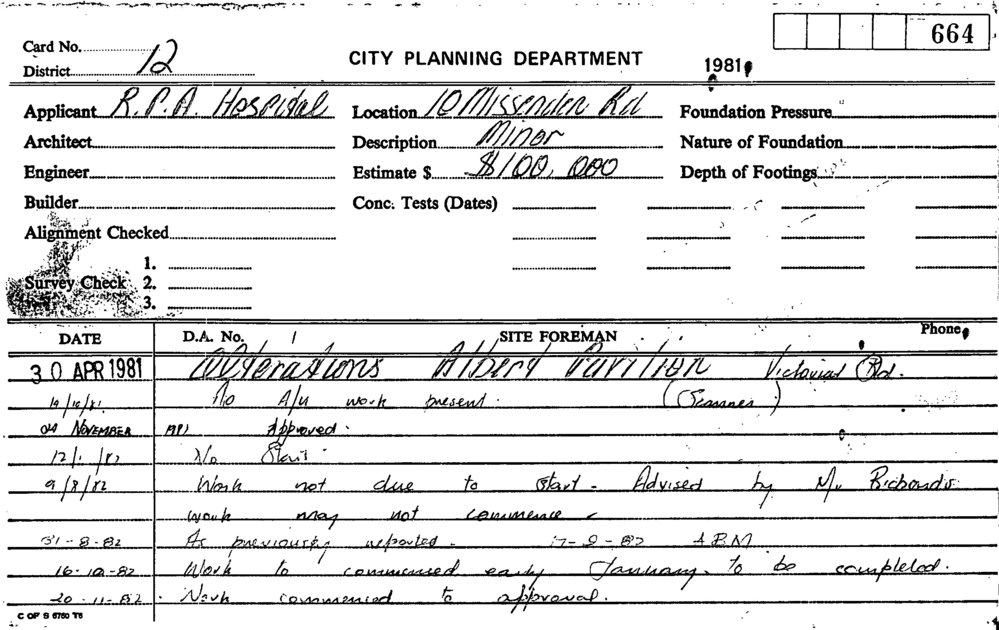 664
Card No.
CITY PLANNING DEPARTMENT
1981
District 12
Applicant R.P.A. Hospital Location 10 Missenden Rd Foundation Pressure
Architect Description Minor Nature of Foundation
Engineer Estimate $ $100,000 Depth of Footings
Builder Conc. Tests (Dates)
Alignment Checked
1.
Survey Check 2.
3.
DATE D.A. No. SITE FOREMAN Phone
30 APR 1981 Alterations Albert Pavilion Victoria Rd.
No A/U work present.
04 NOVEMBER 1981 Approved.
No Start.
9/8/82 Work not due to start - Advised by Mr Richards
work may not commence
31-8-82 As previously reported.
16-10-82 Work to commenced early January. to be completed.
20-11-82 Work commenced to approval.
C OF S 6760 T6